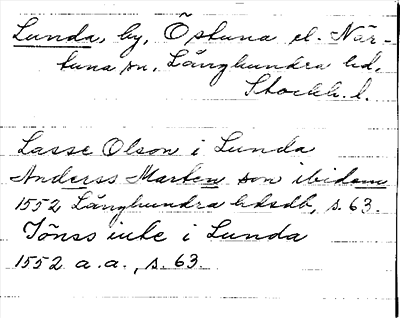 Lunda, by, Östuna el. När-
tuna sn, Långhundra hd,
Stockh. l.
Lasse Olson i Lunda
Anderss Marten son ibidem
1552 Långhundra hdsdb, s. 63.
Jönss inke i Lunda
1552 a. a., s. 63.